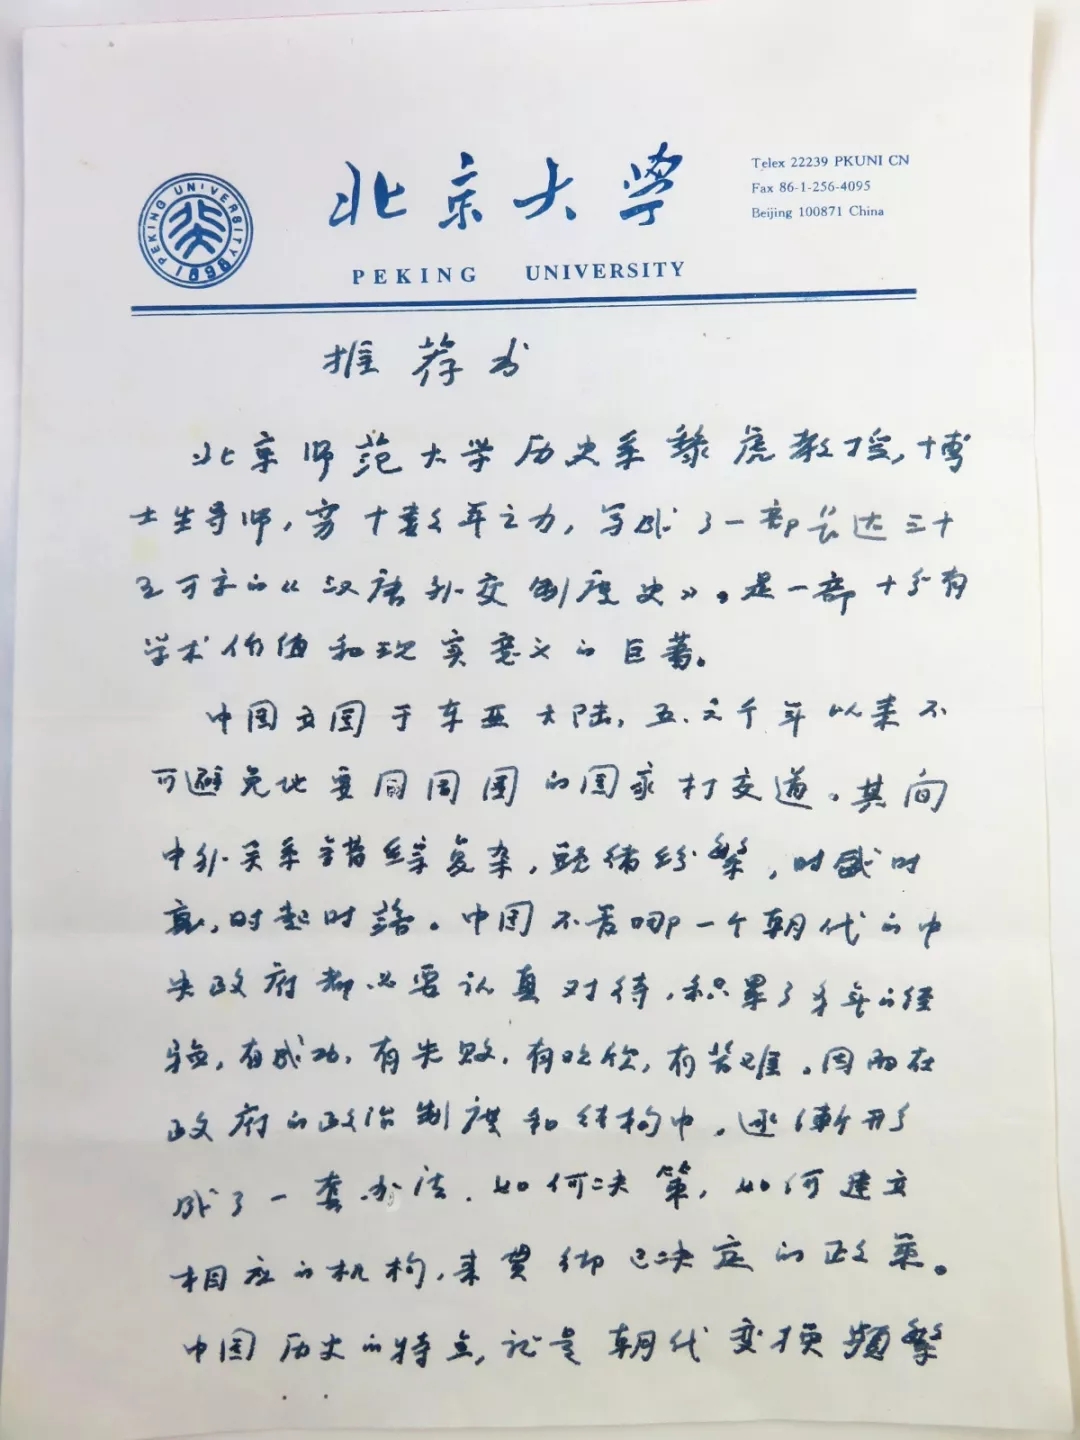 北京大學
PEKING UNIVERSITY
Telex 22239 PKUNI CN
Fax 86-1-256-4095
Beijing 100871 China
PEKING UNIVERSITY 1898
推荐书
北京师范大学历史系黎虎教授，博
士生导师，穷十数年之力，写成了一部长达三十
五万字的《汉唐外交制度史》。是一部十分有
学术价值和现实意义的巨著。
中国立国于东亚大陆，五、六千年以来不
可避免地要同周围的国家打交道。其间
中外关系错综复杂，头绪纷繁，时盛时
衰，时起时落。中国不管哪一个朝代的中
央政府都必要认真对待，积累了多年的经
验，有成功，有失败，有欢欣，有苦难。因而在
政府的政治制度和结构中，逐渐形
成了一套办法，如何决策，如何建立
相应的机构，来贯彻已决定的政策。
中国历史的特点，就是朝代变换频繁